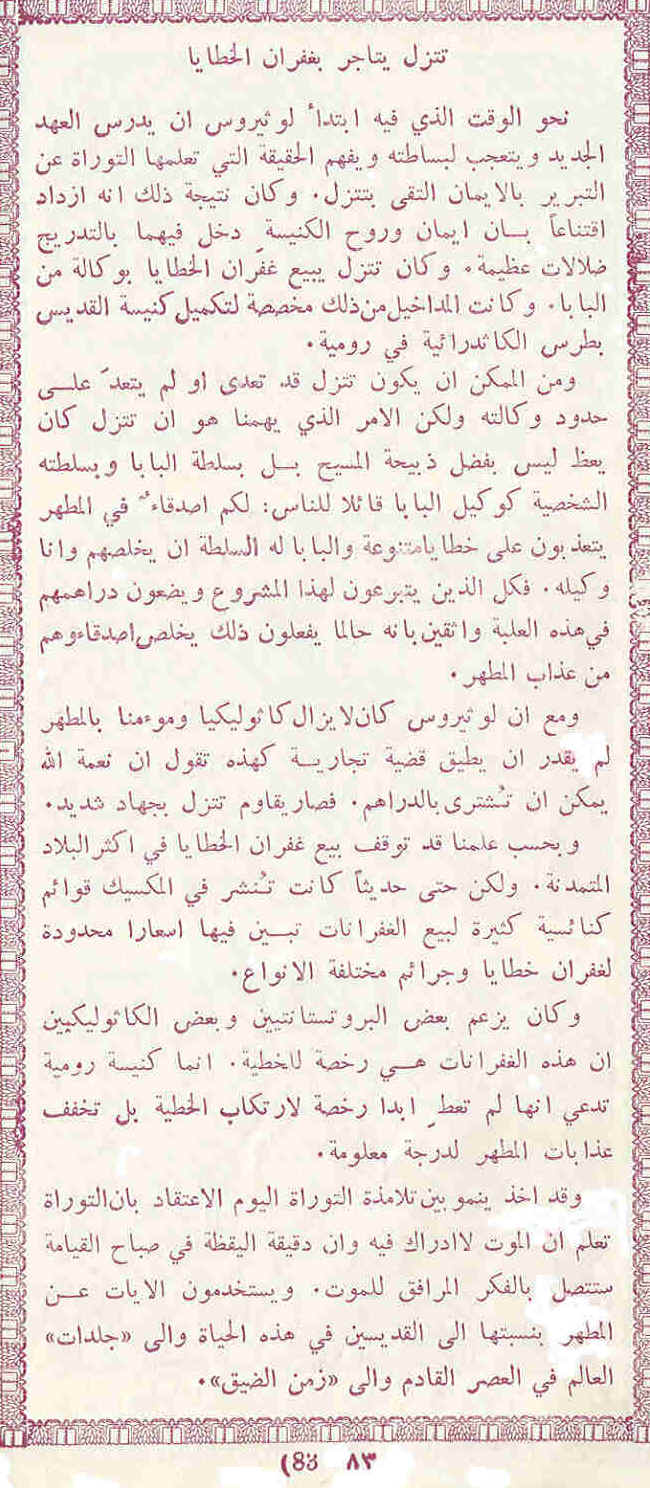 تتزل يتاجر بغفران الخطايا
نحو الوقت الذي فيه ابتدأ لوثيروس ان يدرس العهد
الجديد ويتعجب لبساطته ويفهم الحقيقة التي تعلمها التوراة عن
التبرير بالايمان التقى بتتزل. وكان نتيجة ذلك انه ازداد
اقتناعاً بان ايمان وروح الكنيسة دخل فيهما بالتدريج
ضلالات عظيمة. وكان تتزل يبيع غفران الخطايا بوكالة من
البابا. وكانت المداخيل من ذلك مخصصة لتكميل كنيسة القديس
بطرس الكاثدرائية في رومية.
ومن الممكن ان يكون تتزل قد تعدى او لم يتعدَّ على
حدود وكالته ولكن الامر الذي يهمنا هو ان تتزل كان
يعظ ليس بفضل ذبيحة المسيح بل بسلطة البابا وبسلطته
الشخصية كوكيل البابا قائلا للناس: لكم اصدقاءٌ في المطهر
يتعذبون على خطايا متنوعة والبابا له السلطة ان يخلصهم وانا
وكيله. فكل الذين يتبرعون لهذا المشروع ويضعون دراهمهم
في هذه العلبة واثقين بانه حالما يفعلون ذلك يخلص اصدقاءوهم
من عذاب المطهر.
ومع ان لوثيروس كان لا يزال كاثوليكيا وموءمنا بالمطهر
لم يقدر ان يطيق قضية تجارية كهذه تقول ان نعمة الله
يمكن ان تُشترى بالدراهم. فصار يقاوم تتزل بجهاد شديد.
وبحسب علمنا قد توقف بيع غفران الخطايا في اكثر البلاد
المتمدنة. ولكن حتى حديثاً كانت تُنشر في المكسيك قوائم
كنائسية كثيرة لبيع الغفرانات تبين فيها اسعارا محدودة
لغفران خطايا وجرائم مختلفة الانواع.
وكان يزعم بعض البروتستانتيين وبعض الكاثوليكيين
ان هذه الغفرانات هي رخصة للخطية. انما كنيسة رومية
تدعي انها لم تعطِ ابدا رخصة لارتكاب الخطية بل تخفف
عذابات المطهر لدرجة معلومة.
وقد اخذ ينمو بين تلامذة التوراة اليوم الاعتقاد بان التوراة
تعلم ان الموت لا ادراك فيه وان دقيقة اليقظة في صباح القيامة
ستتصل بالفكر المرافق للموت. ويستخدمون الايات عن
المطهر بنسبتها الى القديسين في هذه الحياة والى «جلدات»
العالم في العصر القادم والى «زمن الضيق».
٨٣ (83